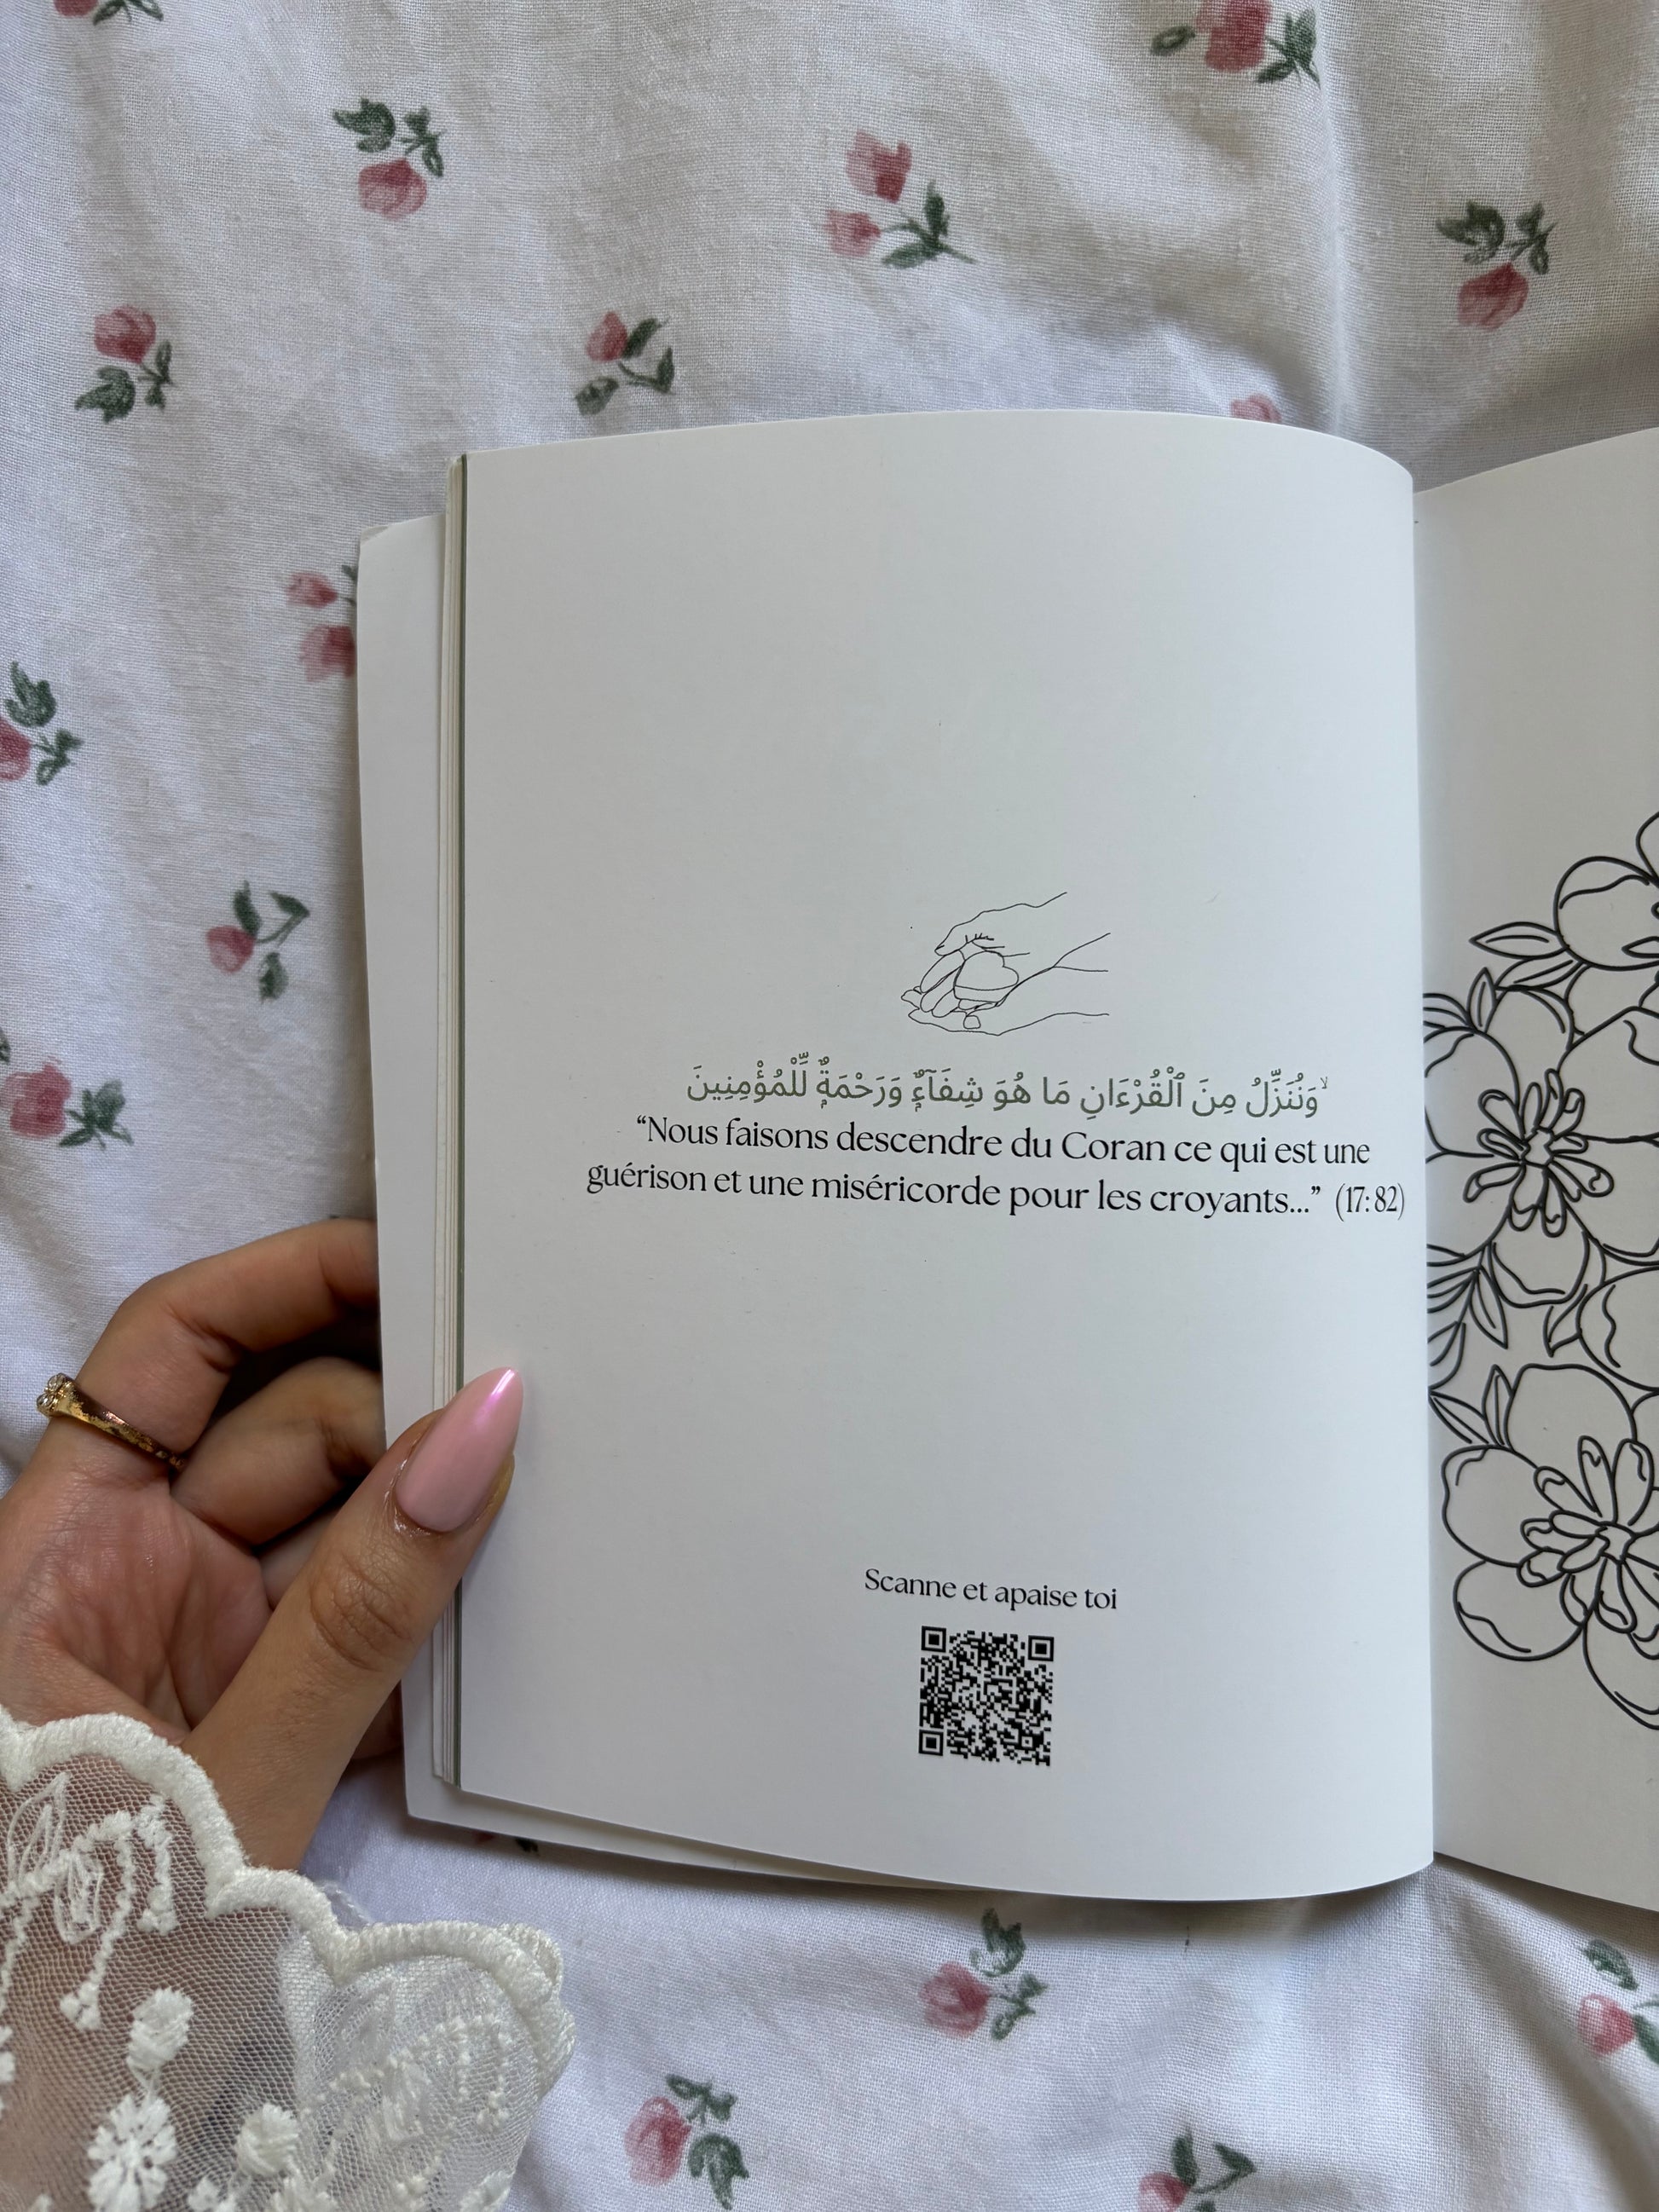 وَنُنَزِّلُ مِنَ ٱلْقُرْءَانِ مَا هُوَ شِفَآءٌ وَرَحْمَةٌ لِّلْمُؤْمِنِينَ ۙ
“Nous faisons descendre du Coran ce qui est une
guérison et une miséricorde pour les croyants...” (17: 82)
Scanne et apaise toi